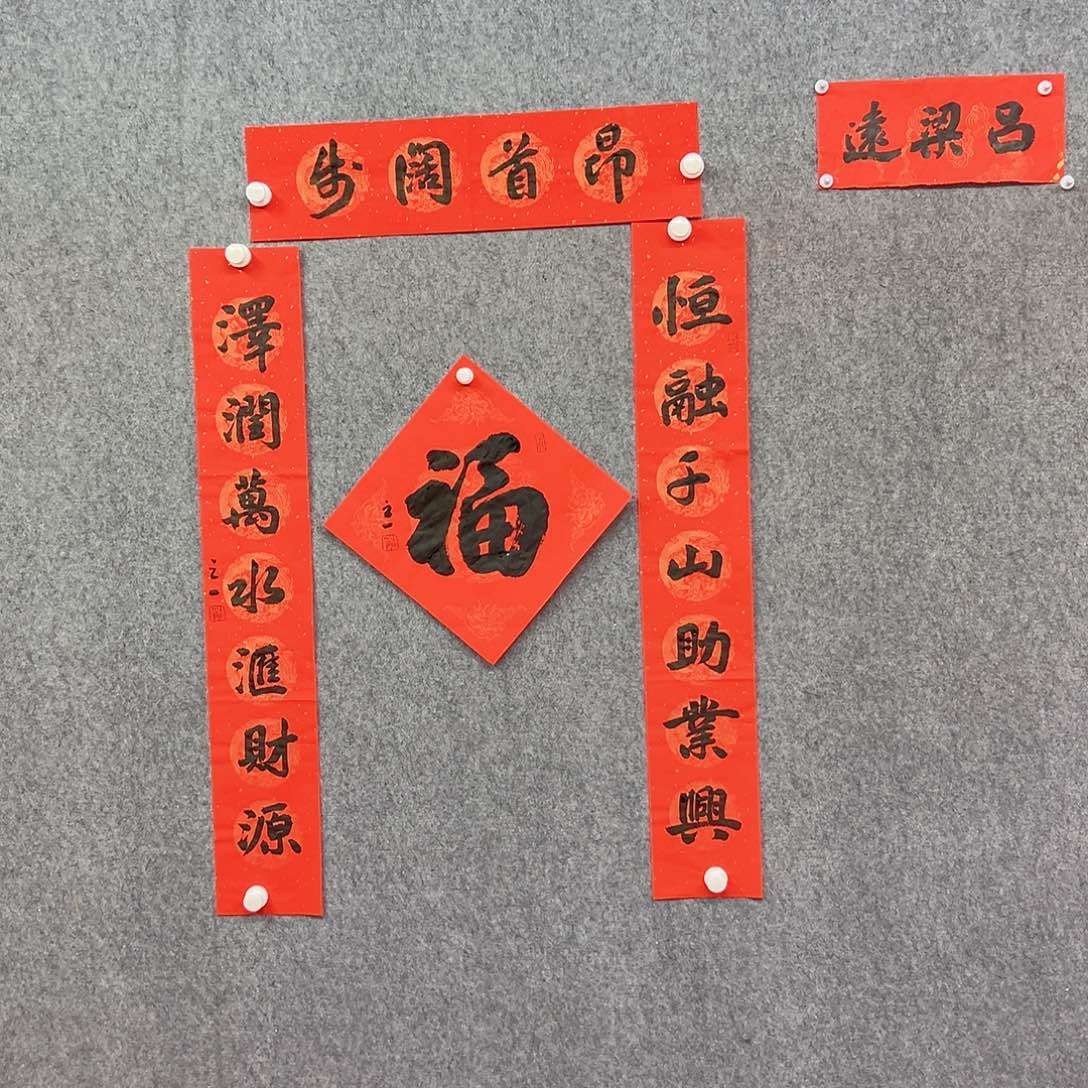 昂首闊步
恒融千山助業興
澤潤萬水滙財源
立一
福
立一
呂梁遠